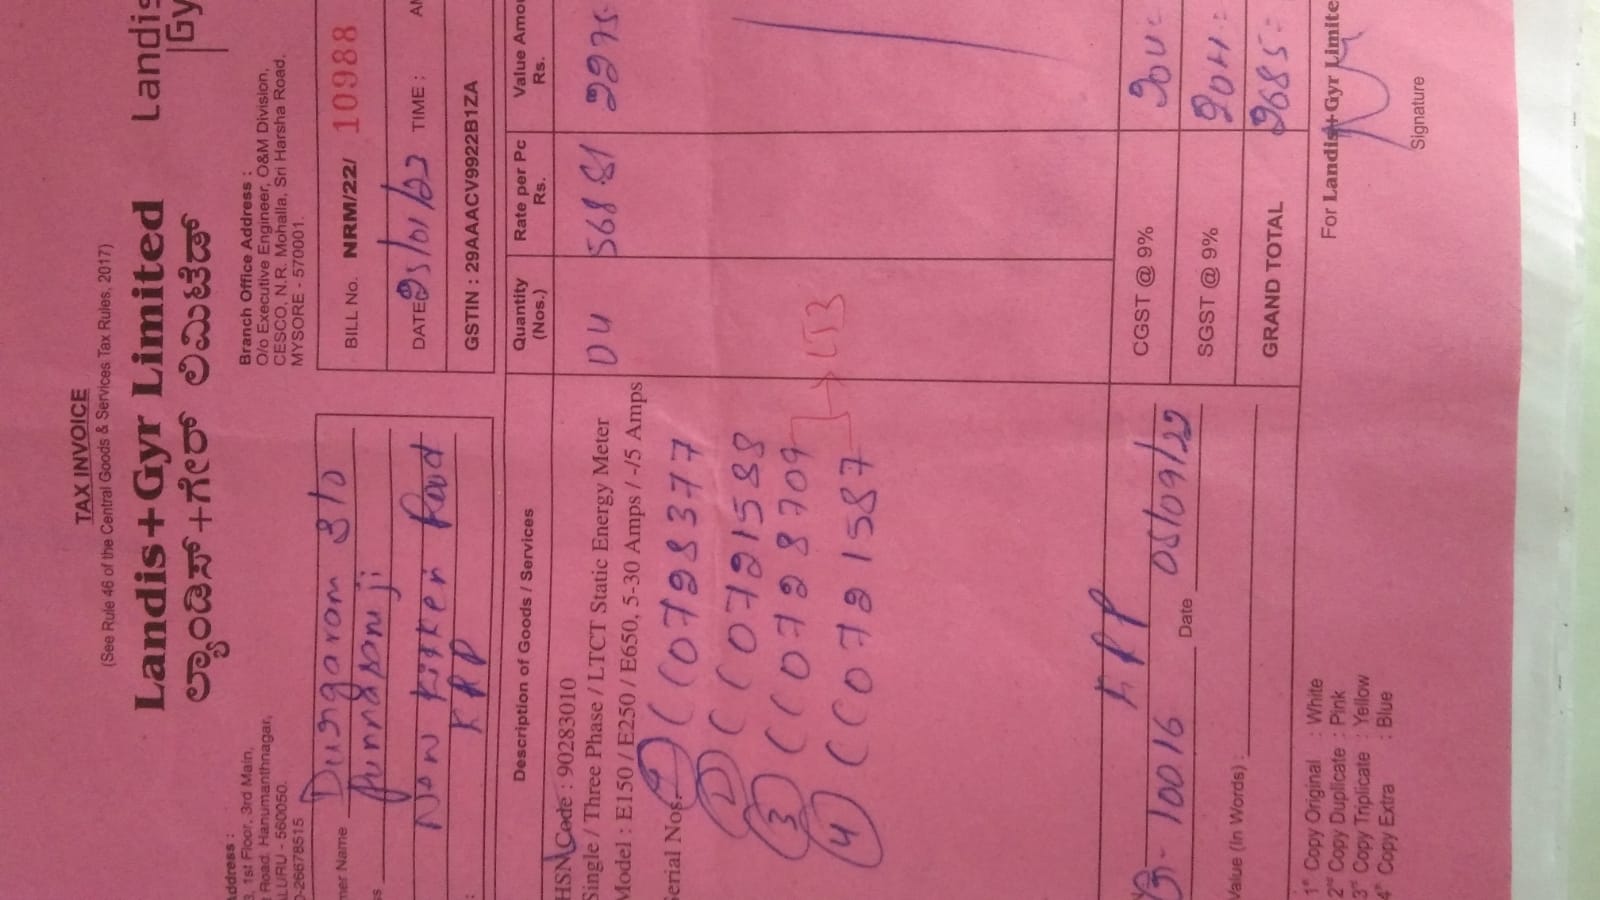 TAX INVOICE
(See Rule 46 of the Central Goods & Services Tax Rules, 2017)
Landis+Gyr Limited
ಲ್ಯಾಂಡಿಸ್+ಗೇರ್ ಲಿಮಿಟೆಡ್
Landis
Gy
Address :
1st Floor, 3rd Main,
Road. Hanumanthnagar,
ALURU - 560050.
0-26678515
Branch Office Address :
O/o Executive Engineer, O&M Division,
CESCO, N.R. Mohalla, Sri Harsha Road.
MYSORE - 570001.
mer Name Dungaram S/o
Punnasamji
New Kitken Road
K R P
BILL No. NRM/22/ 10988
DATE 25/01/23 TIME :
GSTIN : 29AAACV9922B1ZA
Description of Goods / Services Quantity (Nos.) Rate per Pc Rs. Value Amou Rs.
HSN Code : 90283010
Single / Three Phase / LTCT Static Energy Meter 04 568.81 2275-
Model : E150 / E250 / E650, 5-30 Amps / -/5 Amps
Serial Nos.
1 C0728377
2 C0721588
3 C0728709
4 C0721587
KRP
10016 Date 05/09/22
CGST @ 9% 204-
SGST @ 9% 204-
GRAND TOTAL 2685-
Value (In Words) :
For Landis+Gyr Limite
Signature
1st Copy Original : White
2nd Copy Duplicate : Pink
3rd Copy Triplicate : Yellow
4th Copy Extra : Blue